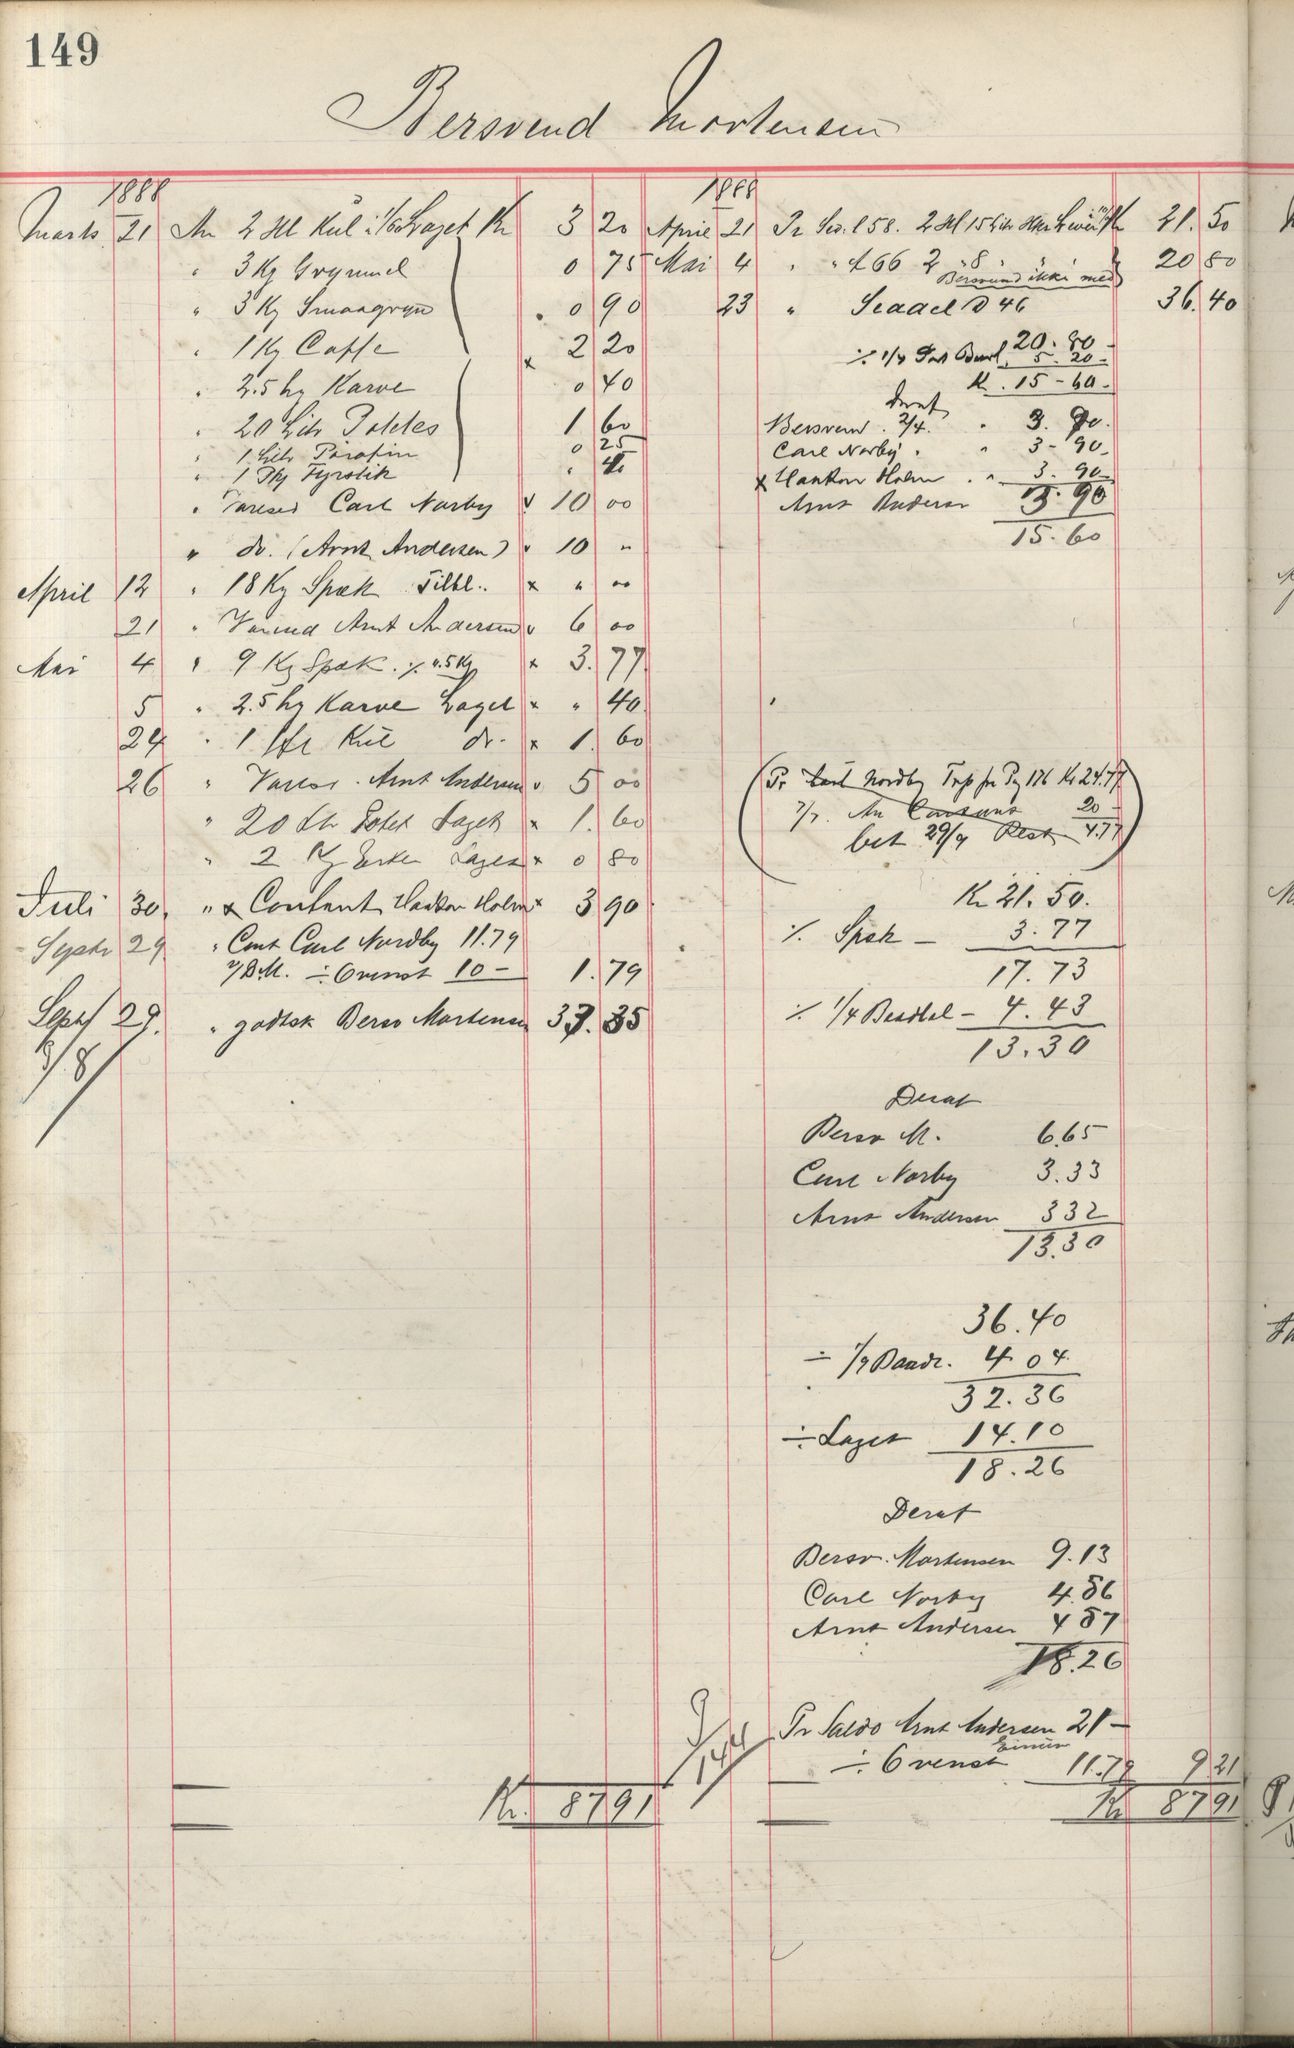 149
Bersvend Mortensen
1888
Marts 21 An 2 Hl Kul Laget Kr 3 20
" 3 Kg Grynmel 0 75
" 3 Kg Smaagryn 0 90
" 1 Kg Caffe x 2 20
" 2.5 hg Karve 0 40
" 20 Litr Potetes 1 60
" 1 Litr Parafin 0 25
" 1 Pk Fyrstik
" Carl Norby v 10 00
" do. (Arnt Andersen) v 10 "
April 12 " 18 Kg Spek Tilbl. x " 00
21 " Arnt Andersen v 6 00
Mai 4 " 9 Kg Spek. x 3.77
5 " 2.5 hg Karve Laget x " 40
24 " 1 Hl Kul do. x 1. 60
26 " Arnt Andersen v 5 00
" 20 Potet Laget x 1. 60
" 2 Kg Erter Laget x 0 80
Juli 30. " x Contant Haakon Holm x 3 90
Septr 29 " Cont Carl Nordby 11.79
÷ Ovenst 10 — 1. 79
Sept 29. " godtsk Bersv Mortensen 37. 35
Kr. 87 91
1888
April 21 Pr 2 Hl 15 Litr 21. 50
Mai 4 " " 66 2 " 8 " 20 80
Bersvend ikke med
23 " 46 36. 40
20.80
1/4 5.20
K. 15-60
Derat
Bersvend 2/4. " 3. 90.
Carl Norby " " 3-90
x Haakon Holm " 3.90
Arnt Anderse 3.90
15.60
(Pr Carl Nordby Pg 176 Kr 24.77
An Contant 20 -
bet 29/9 Rest 4.77)
Kr 21.50.
% Spek — 3.77
17.73
% 1/4 — 4.43
13.30
Derat
Bersv M. 6.65
Carl Norby 3.33
Arnt Andersen 3 32
13.30
36.40
÷ 1/9 Baadl. 4 04
32.36
÷ Laget 14.10
18.26
Derat
Bersv. Mortensen 9.13
Carl Norby 4.56
Arnt Andersen 4 57
18.26
Pr Saldo Arnt Andersen 21 —
÷ Ovenst 11.79 9 21
Kr 87 91